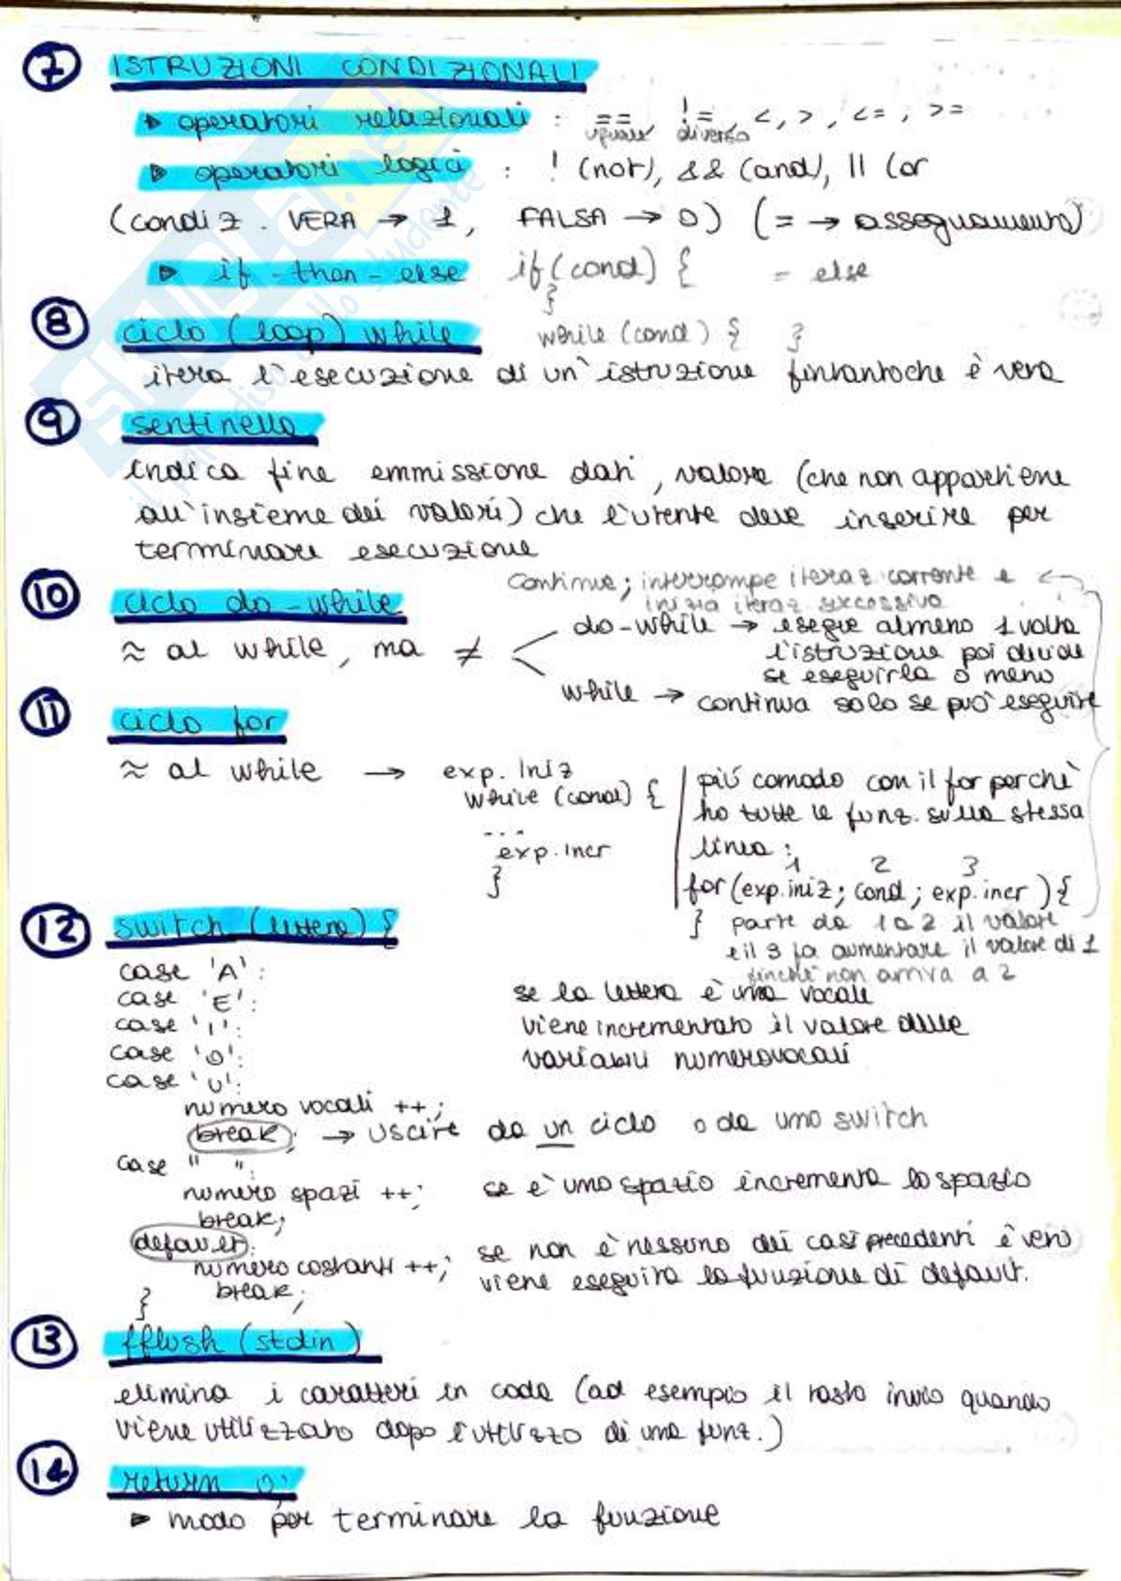 7 ISTRUZIONI CONDIZIONALI
▶ operatori relazionali : == , != , <, > , <= , >=
uguale diverso
▶ operatori logici : ! (not), && (and), || (or
(condiz. VERA → 1, FALSA → 0) (= → assegnamento)
▶ if-than-else if(cond) { = else
}
8 ciclo (loop) while while (cond) { }
itera l'esecuzione di un'istruzione fintantoche è vera
9 sentinella
indica fine emmissione dati, valore (che non appartiene
all'insieme dei valori) che l'utente deve inserire per
terminare esecuzione
continue; interrompe iteraz. corrente e
inizia iteraz. successiva
10 ciclo do-while
≈ al while, ma ≠
do-while → esegue almeno 1 volta
l'istruzione poi decide
se eseguirla o meno
while → continua solo se può eseguire
11 ciclo for
≈ al while → exp. iniz
while (cond) {
...
exp.incr
}
più comodo con il for perchè
ho tutte le funz. sulla stessa
linea :
1 2 3
for (exp.iniz; cond; exp.incr ) {
} parte da 1 a 2 il valore
e il 3 fa aumentare il valore di 1
finchè non arriva a 2
12 switch (lettera) {
case 'A':
case 'E':
case 'I':
case 'O':
case 'U':
se la lettera è una vocale
viene incrementato il valore delle
variabili numerovocali
numero vocali ++;
break; → uscire da un ciclo o da uno switch
case " ":
numero spazi ++; se è uno spazio incrementa lo spazio
break;
default:
numero costanti ++;
break;
}
se non è nessuno dei casi precedenti è vero
viene eseguita la funzione di default.
13 fflush (stdin)
elimina i caratteri in coda (ad esempio il tasto invio quando
viene utilizzato dopo l'utilizzo di una funz.)
14 return 0;
▶ modo per terminare la funzione